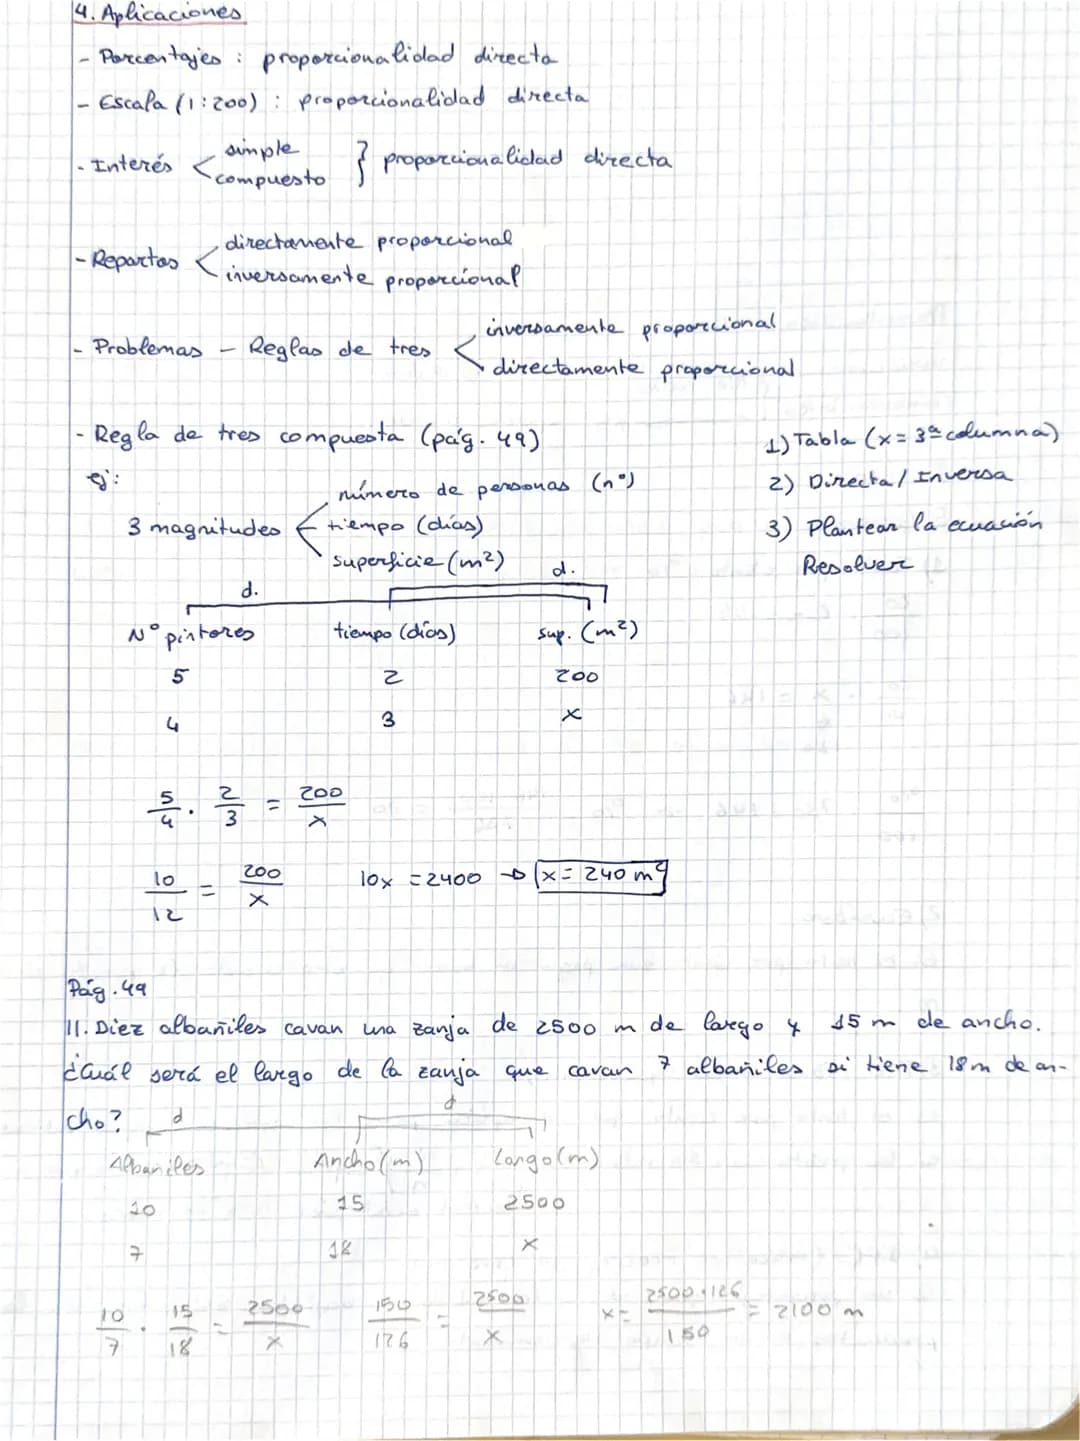 4. Aplicaciones
- Porcentajes : proporcionalidad directa
- Escala (1:200) : proporcionalidad directa
- Interés < simple compuesto } proporcionalidad directa
- Repartos < directamente proporcional
inversamente proporcional
- Problemas - Reglas de tres < inversamente proporcional
directamente proporcional
- Regla de tres compuesta (pág. 49)
ej:
3 magnitudes
número de personas (nº)
tiempo (días)
superficie (m²)
1) Tabla (x = 3ª columna)
2) Directa / Inversa
3) Plantear la ecuación
Resolver
d. d.
Nº pintores tiempo (días) sup. (m²)
5 2 200
4 3 x
5/4 · 2/3 = 200/x
10/12 = 200/x 10x = 2400 → x = 240 m²
Pág. 49
11. Diez albañiles cavan una zanja de 2500 m de largo y 15 m de ancho.
¿Cuál será el largo de la zanja que cavan 7 albañiles si tiene 18m de an-
cho?
d d
Albañiles Ancho (m) Largo (m)
10 15 2500
7 18 x
10/7 · 15/18 = 2500/x 150/126 = 2500/x x = 2500·126/150 = 2100 m